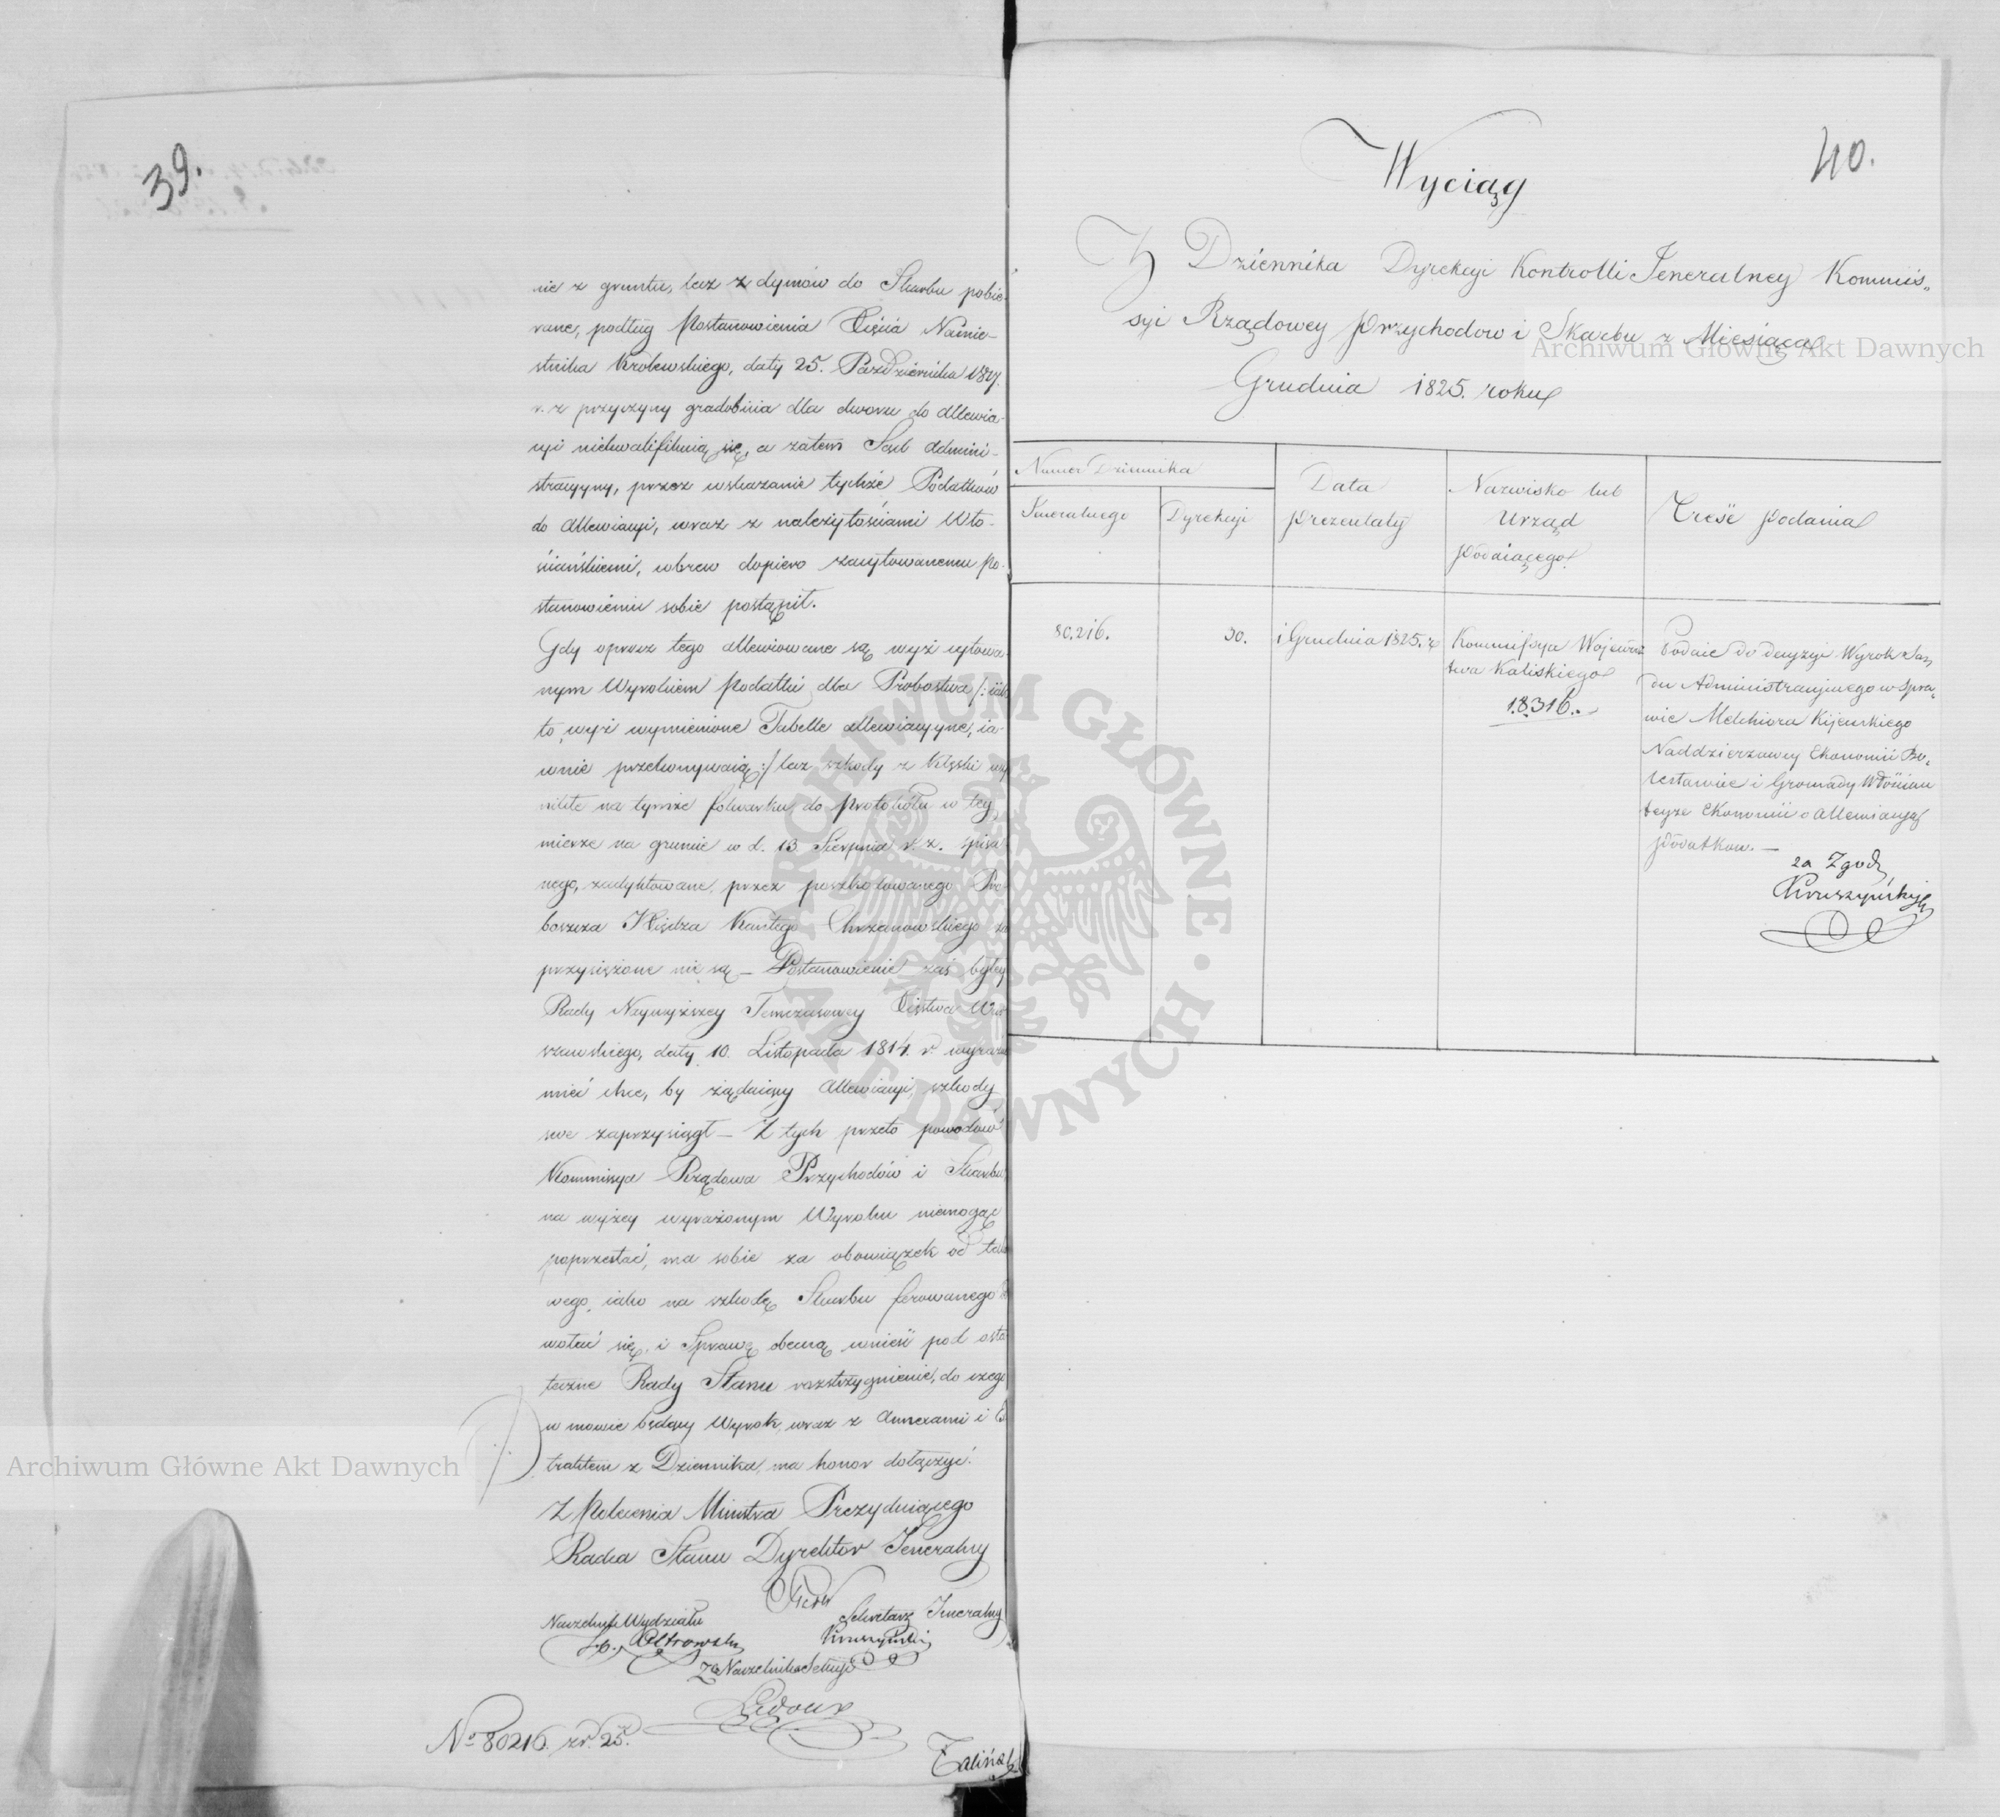 39.
nie z gruntu, lecz z dymów do Skarbu pobie-
rane, podług Postanowienia Xięcia Namie-
stnika Królewskiego, daty 25. Października 1817.
r. z przyczyny gradobicia dla dworu do allewia-
cyi niekwalifikuią się, a zatem Sąd Admini-
stracyyny, przez wskazanie tychże Podatków
do allewiacyi, wraz z należytościami Wło-
ściańskiemi, wbrew dopiero zacytowanemu Po-
stanowieniu sobie postąpił.
Gdy oprócz tego allewiowane są wyż cytowa-
nym Wyrokiem Podatki dla Probostwa /: iak
to wyż wymienione Tabelle allewiacyyne, ia-
wnie przekonywaią :/ lecz szkody z klęski
na tymże folwarku do protokółu w tey
mierze na gruncie w d. 13 Sierpnia r. z. spisa
nego, zadyktowane, przez poszkodowanego Pro
boszcza Xiędza Kantego Chrzanowskiego za
przysiężone nie są — Postanowienie zaś byłey
Rady Naywyższey Tymczasowey Xięstwa War
szawskiego, daty 10. Listopada 1814. r.
mieć chce, by żądaiący allewiacyi, szkody
swe zaprzysiągł — Z tych przeto powodów
Kommissya Rządowa Przychodów i Skarbu,
na wyżey wyrażonym Wyroku niemogąc
poprzestać, ma sobie za obowiązek od tako
wego, iako na szkodę Skarbu ferowanego od
wołać się, i Sprawę obecną wnieść pod osta
teczne Rady Stanu rozstrzygnienie, do czego
w mowie będący Wyrok, wraz z Annexami i Ex
traktem z Dziennika, ma honor dołączyć.
Z Polecenia Ministra Prezyduiącego
Radca Stanu Dyrektor Jeneralny
Naczelnik Wydziału
Sekretarz Jeneralny
Kruszyński
Za Naczelnika Sekcyi
Ledoux
No 80216. r. 25.
Zaliński
40.
Wyciąg
Z Dziennika Dyrekcyi Kontrolli Jeneralney Kommis„
syi Rządowey Przychodow i Skarbu z Miesiąca
Grudnia 1825. roku
Numer Dziennika
Jeneralnego
Dyrekcyi
Data
Prezentaty
Nazwisko lub
Urząd
Podaiącego
Treść Podania
80.216.
30.
1 Grudnia 1825. r
Kommissya Wojewódz
twa Kaliskiego
18316.
Podaie do decyzyi Wyrok Są„
du Administracyinego w Spra„
wie Melchiora Kijewskiego
Naddzierzawcy Ekonomii Bo„
lesławiec i Gromady Włościan
teyże Ekonomii o allewiacyą
Podatkow. —
za Zgod
Kruszyński
Archiwum Główne Akt Dawnych
Archiwum Główne Akt Dawnych
ARCHIWUM GŁÓWNE AKT DAWNYCH